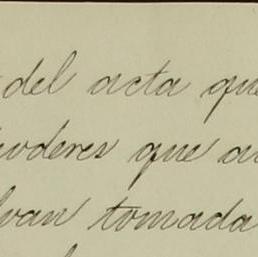 del acta que
poderes que a
van tomada